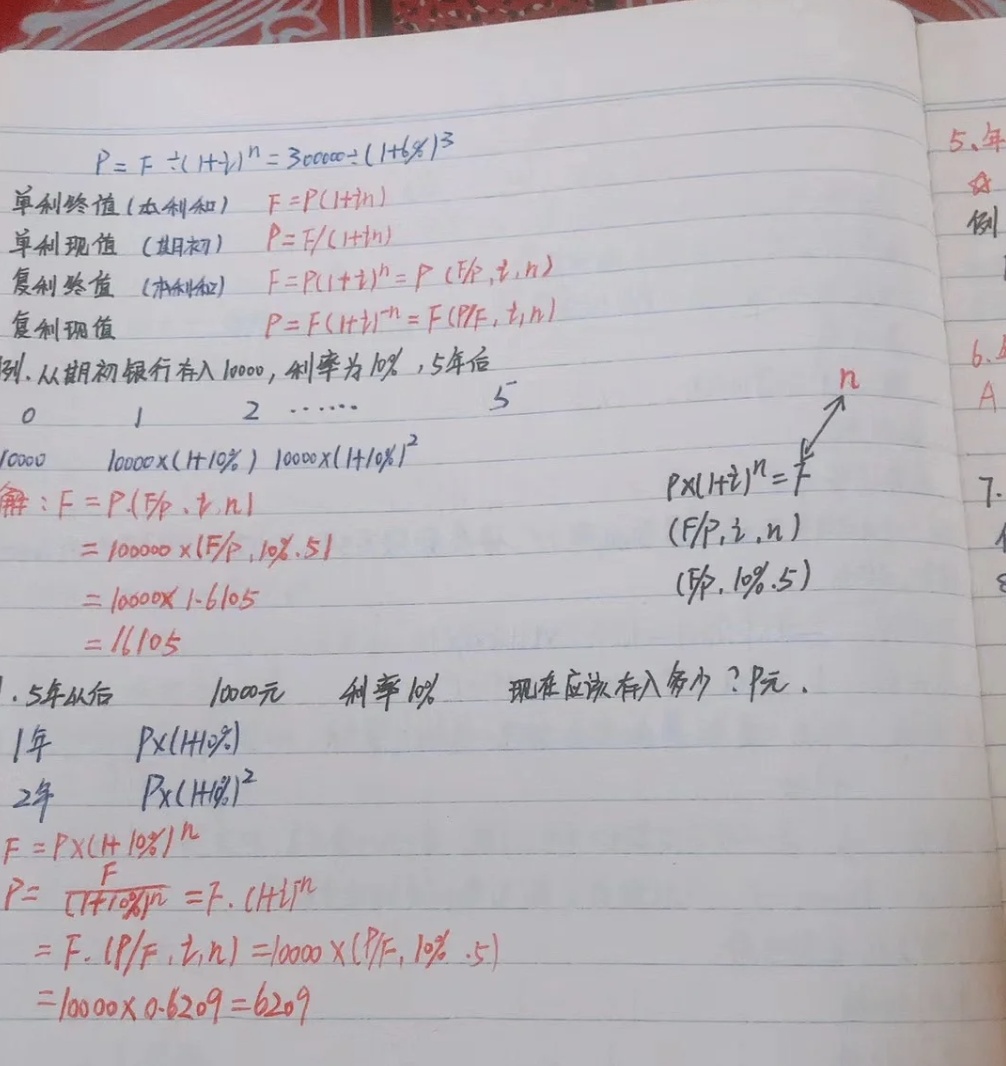 P = F ÷(1+i)ⁿ = 300000÷(1+6%)³
单利终值(本利和) F=P(1+in)
单利现值 (期初) P=F/(1+in)
复利终值 (本利和) F=P(1+i)ⁿ=P (F/P,i,n)
复利现值 P=F(1+i)⁻ⁿ=F(P/F,i,n)
例.从期初银行存入10000,利率为10%,5年后
0 1 2 …… 5
10000 10000×(1+10%) 10000×(1+10%)²
解:F=P.(F/P、i,n)
=100000×(F/P,10%.5)
=10000×1.6105
=16105
n
P×(1+i)ⁿ=F
(F/P,i,n)
(F/P.10%.5)
.5年以后 10000元 利率10% 现在应该存入多少?P元.
1年 P×(1+10%)
2年 P×(1+10%)²
F=P×(1+10%)ⁿ
P= F/(1+10%)ⁿ =F.(1+i)⁻ⁿ
=F.(P/F,i,n)=10000×(P/F,10%.5)
=10000×0.6209=6209
5、年
☆
例
6.
A
7.